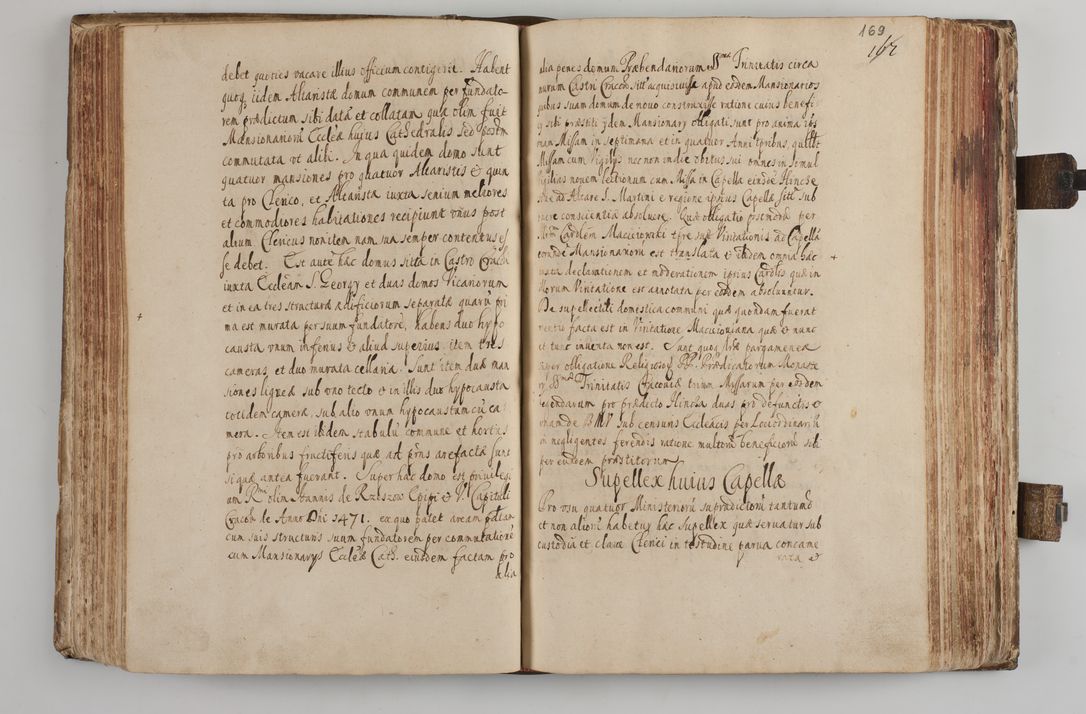 debet quoties vacare illius officium contigerit. Habent
quoq iidem Altaristæ domum communem per fundato-
rem prædictum sibi datã et collatam quæ olim fuit
Mansionarioru Eccleæ hujus Cathedralis sed postm
commutata vt alibi. In qua quidem domo sunt
quatuor mansiones pro quatuor Altaristis & quin
ta pro Clerico, et Altarista iuxta senium meliores
et commodiores habitationes recipiunt vnus post
alium Clericus non item nam sua semper contentus es
se debet. Est autẽ hæc domus sita in Castro Cracou
iuxta Eccleam S. Georgy et duas domos Vicariorum
et in ea tres structuræ ædificiorum separatæ quarũ pri
ma est murata per suum fundatorẽ, habens duo hypo
causta vnum inferius & aliud superius item tres
cameras et duo murata cellaria. Sunt item duæ man
siones ligneæ sub vno tecto & in illis duo hypocausta
totidem cameræ, sub alio vnum hypocaustum cũ ca
mera. Item est ibidem stabulũ commune et hortus
pro arboribus fructiferis quæ ad prñs arefactæ sunt
si quæ antea fuerant. Super hac domo est privilegi
um Rmi olim Ioannis de Rzeszow Epipi & V. Capituli
Cracoù de Anno Dni 1471. ex quo patet aream
cum suis structuris suum fundatorem per commutationẽ
cum Mansionarys Eccleæ Cath. eiusdem factam pro
alia
169
alia penes domum Præbendariorum SSmæ Trinitatis circa
murum Castri Cracoù. sitã acquisiuisse apud eosdem Mansionarios
quibus suam domum de nouo construxisse ratione cuius benefi
sibi præstiti ydem Mansionary obligati sunt pro anima
Missam in septimana et in quatuor Anni
Missam cum Vigilys nec non in die obitus sui omnes in simul
vigilias nouem lectionum cum Missa in Capella eiusdẽ
ad Altare S. Martini e regione ipsius Capellæ sub
conscientiæ absoluere. Quæ obligatio postmodũ per
Cardlem Macieiowski tpre suæ Visitationis ad Capellã
Mansionarioru est translata & eadem omnia hæc
declarationem et moderationem ipsius Cardlis quæ in
illorum Visitatione est annotata per eosdem absoluuntur.
De supellectili domestica communi quæ quondam fuerat
mentio facta est in Visitatione Macieiouiana quæ & nunc
et tunc inventa non est. Sunt quoq pargameneæ
super obligatione Religiosoꝝ PP. Prædicatorum Monaste
ry SSmæ Trinitatis Cracouiæ trium Missarum per eosdem
legendarum pro prædicto Hincza duas pro defunctis &
vnam de BMV sub censuris Ecclecis per Lociordinariũ
in negligentes ferendis ratione multorũ beneficiorũ sibi
per eundem præstitorum
Supellex huius Capellæ
Pro vsu quatuor Ministrorũ supradictorũ tantumõ
et non aliorũ habetur hæc supellex quæ servatur sub
custodia et claue Clerici in testudine parua concame
rata &